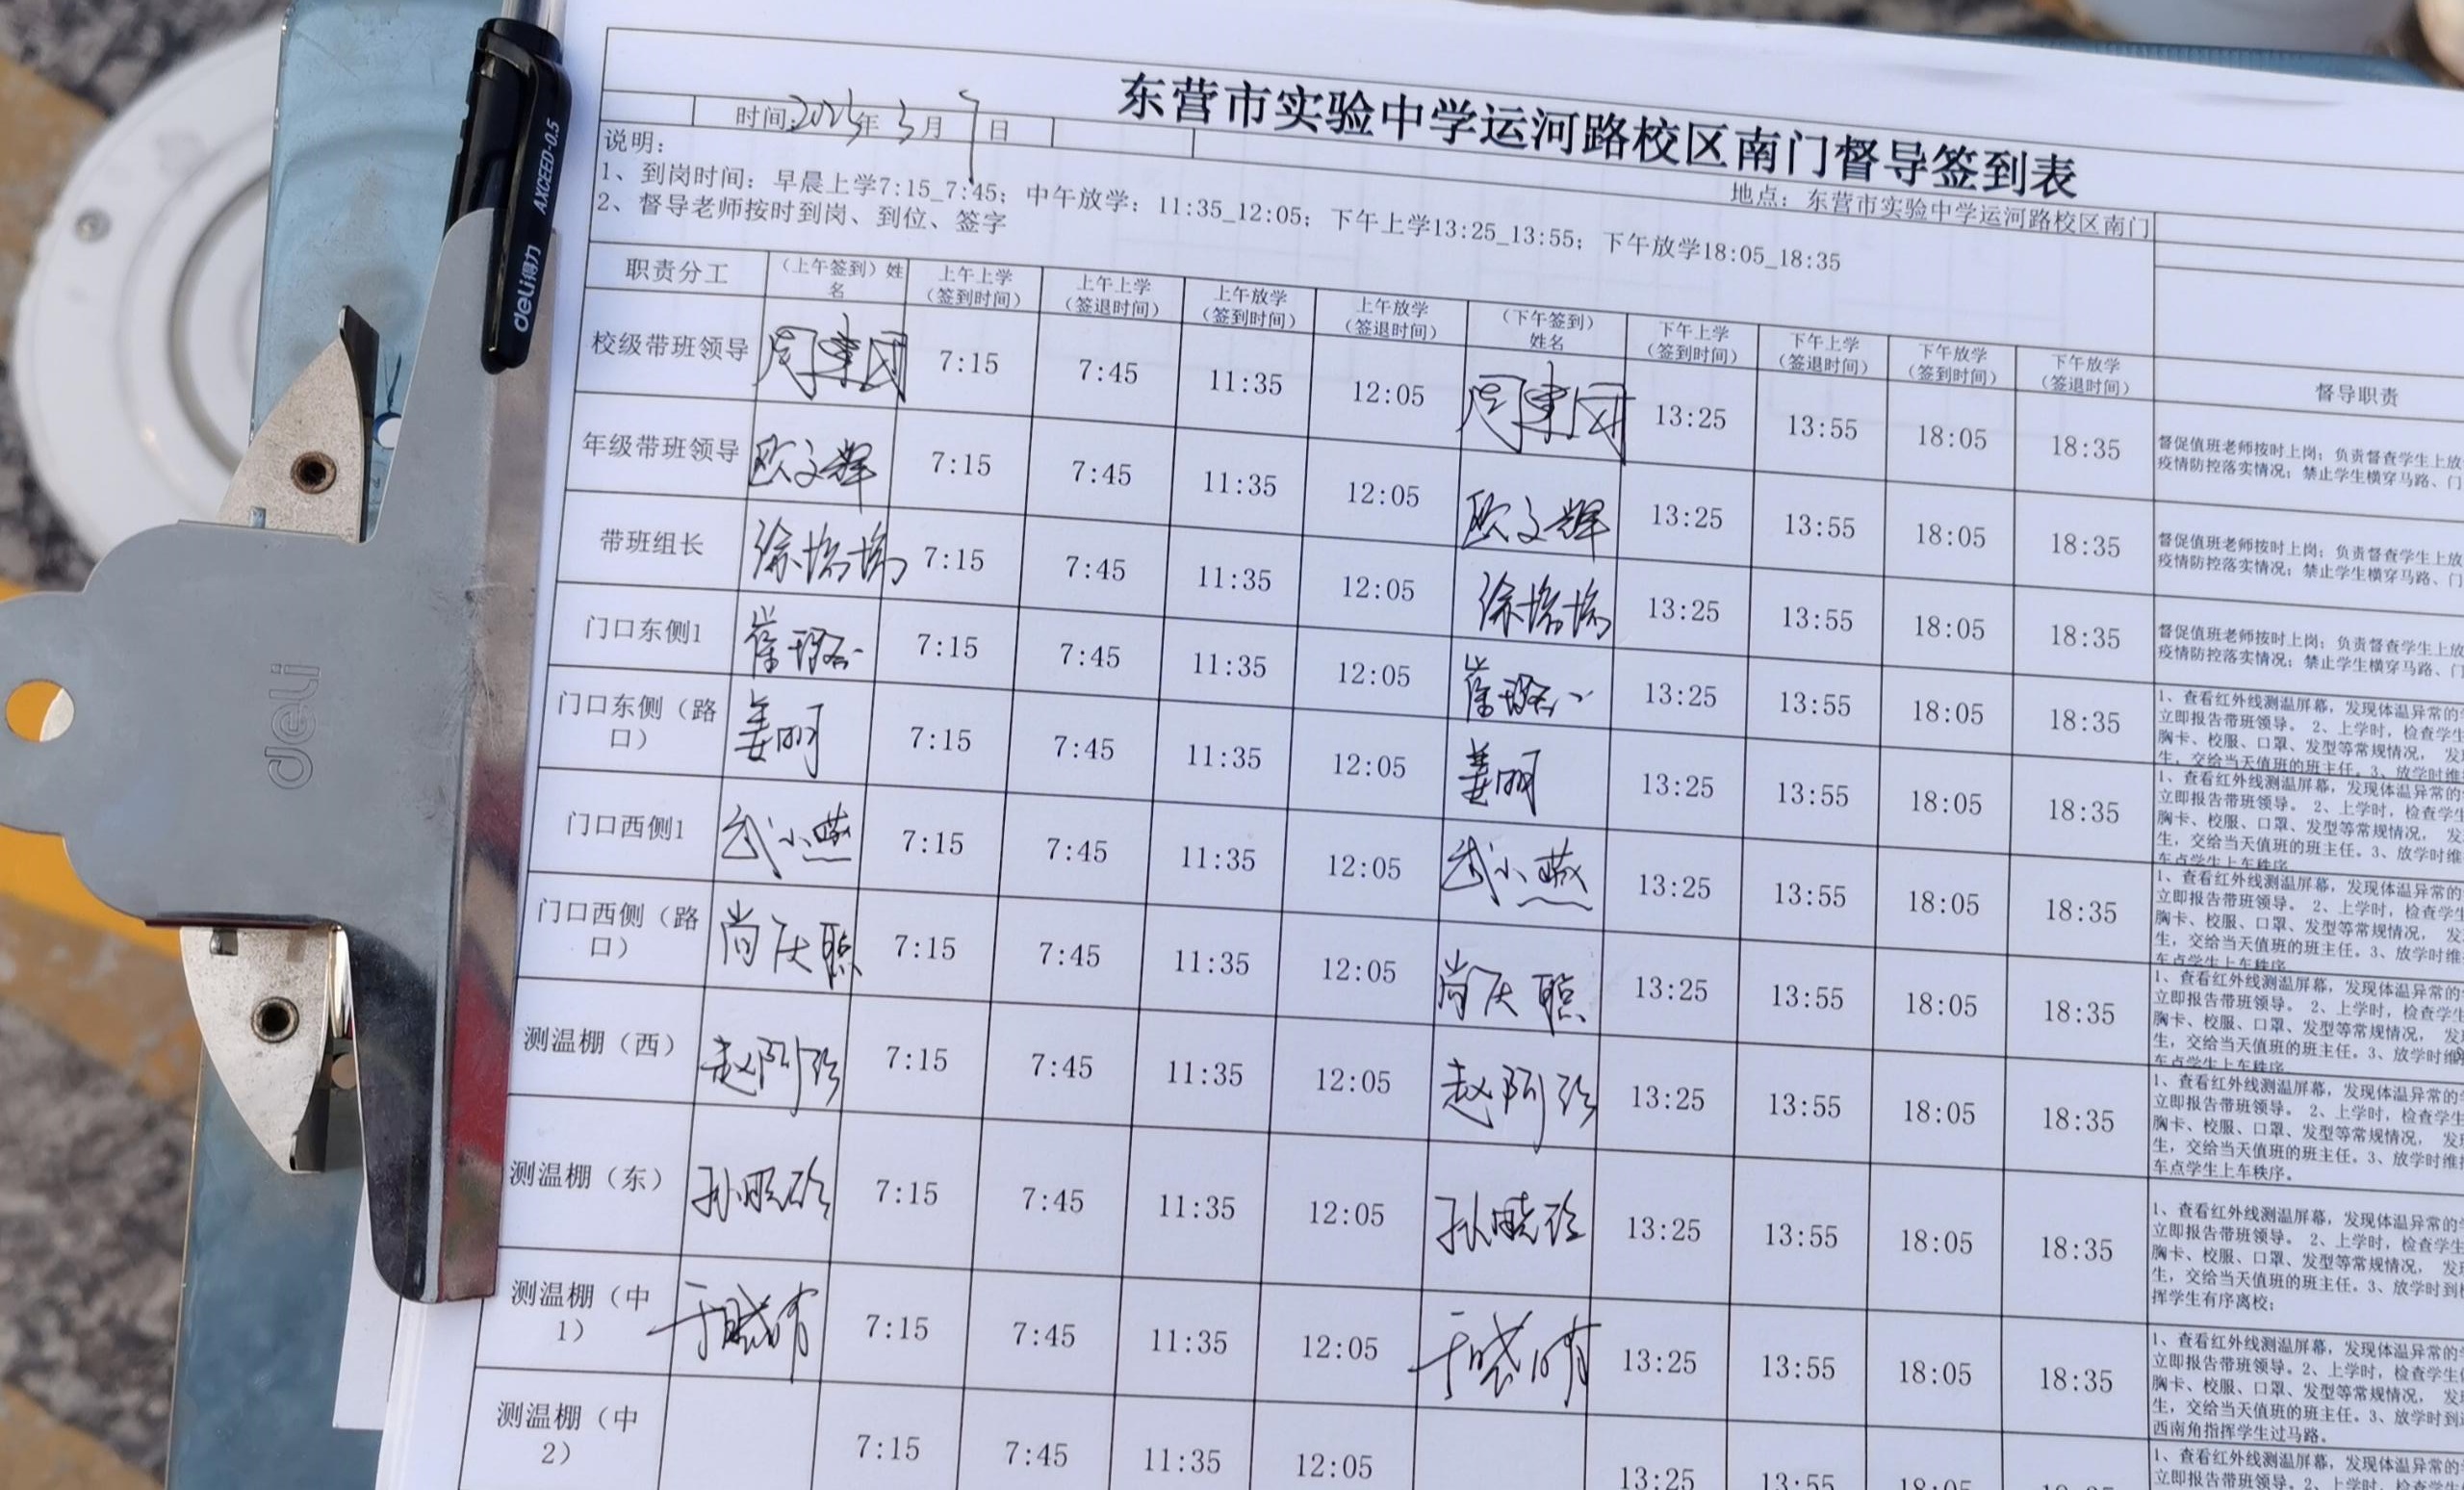 东营市实验中学运河路校区南门督导签到表
时间:2023年3月7日
地点：东营市实验中学运河路校区南门
说明：
1、到岗时间：早晨上学7:15_7:45；中午放学：11:35_12:05；下午上学13:25_13:55；下午放学18:05_18:35
2、督导老师按时到岗、到位、签字
职责分工 （上午签到）姓名 上午上学（签到时间） 上午上学（签退时间） 上午放学（签到时间） 上午放学（签退时间） （下午签到）姓名 下午上学（签到时间） 下午上学（签退时间） 下午放学（签到时间） 下午放学（签退时间） 督导职责
校级带班领导 周建国 7:15 7:45 11:35 12:05 周建国 13:25 13:55 18:05 18:35
督促值班老师按时上岗；负责督查学生上放
疫情防控落实情况；禁止学生横穿马路、门
年级带班领导 欧文辉 7:15 7:45 11:35 12:05 欧文辉 13:25 13:55 18:05 18:35
督促值班老师按时上岗；负责督查学生上放
疫情防控落实情况；禁止学生横穿马路、门
带班组长 徐培培 7:15 7:45 11:35 12:05 徐培培 13:25 13:55 18:05 18:35
督促值班老师按时上岗；负责督查学生上放
疫情防控落实情况；禁止学生横穿马路、门
门口东侧1 崔璐 7:15 7:45 11:35 12:05 崔璐 13:25 13:55 18:05 18:35
1、查看红外线测温屏幕，发现体温异常的
立即报告带班领导。 2、上学时，检查学生
胸卡、校服、口罩、发型等常规情况， 发
生，交给当天值班的班主任。3、放学时维
门口东侧（路口） 姜明 7:15 7:45 11:35 12:05 姜明 13:25 13:55 18:05 18:35
1、查看红外线测温屏幕，发现体温异常的
立即报告带班领导。 2、上学时，检查学生
胸卡、校服、口罩、发型等常规情况， 发
生，交给当天值班的班主任。3、放学时维
车点学生上车秩序
门口西侧1 武小燕 7:15 7:45 11:35 12:05 武小燕 13:25 13:55 18:05 18:35
1、查看红外线测温屏幕，发现体温异常的
立即报告带班领导。 2、上学时，检查学生
胸卡、校服、口罩、发型等常规情况， 发
生，交给当天值班的班主任。3、放学时维
车点学生上车秩序
门口西侧（路口） 尚庆聪 7:15 7:45 11:35 12:05 尚庆聪 13:25 13:55 18:05 18:35
1、查看红外线测温屏幕，发现体温异常的
立即报告带班领导。 2、上学时，检查学生
胸卡、校服、口罩、发型等常规情况， 发
生，交给当天值班的班主任。3、放学时维
车点学生上车秩序
测温棚（西） 赵阿珍 7:15 7:45 11:35 12:05 赵阿珍 13:25 13:55 18:05 18:35
1、查看红外线测温屏幕，发现体温异常的
立即报告带班领导。 2、上学时，检查学生
胸卡、校服、口罩、发型等常规情况， 发
生，交给当天值班的班主任。3、放学时维
车点学生上车秩序。
测温棚（东） 孙晓玲 7:15 7:45 11:35 12:05 孙晓玲 13:25 13:55 18:05 18:35
1、查看红外线测温屏幕，发现体温异常的
立即报告带班领导。 2、上学时，检查学生
胸卡、校服、口罩、发型等常规情况， 发
生，交给当天值班的班主任。3、放学时到
挥学生有序离校；
测温棚（中1） 7:15 7:45 11:35 12:05 13:25 13:55 18:05 18:35
1、查看红外线测温屏幕，发现体温异常的
立即报告带班领导。2、上学时，检查学生
胸卡、校服、口罩、发型等常规情况， 发
生，交给当天值班的班主任。3、放学时到
西南角指挥学生过马路。
测温棚（中2） 7:15 7:45 11:35 12:05 13:25 13:55 18:05
1、查看红外线测温屏幕，发现体温异常的
立即报告带班领导。2、上学时，检查学生
deli得力 AXCEED-0.5
deli